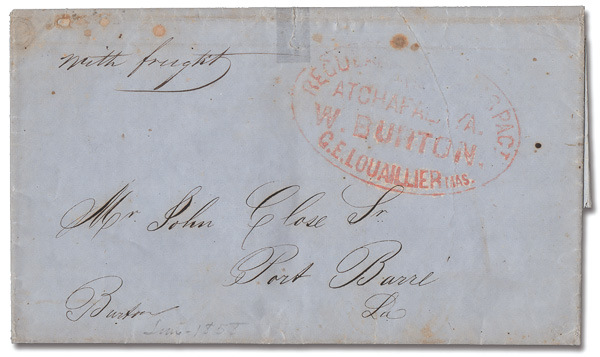 with freight
ATCHAFALAYA.
W. BURTON.
G.E. LOUAILLIER MAS.
Mr John Close Sr.
Port Barré
La
Burton